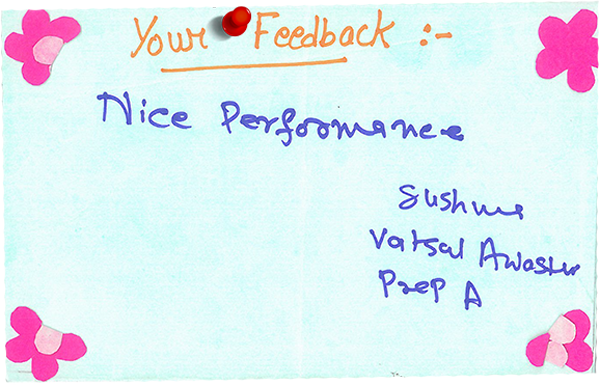 Your Feedback :-
Nice Performance
Sushma
Vatsal Awasthi
Prep A